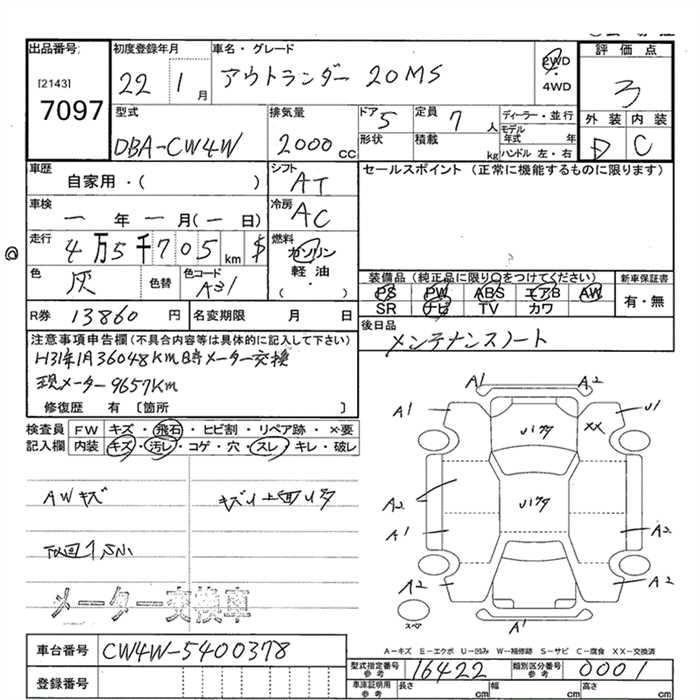 出品番号
[2143]
7097
初度登録年月
22 1月
車名・グレード
アウトランダー 20MS
2WD
4WD
評価点
3
外装 内装
D C
型式
DBA-CW4W
排気量
2000 CC
ドア 5
形状
定員 7 人
積載 kg
ディーラー・並行
モデル年式 年
ハンドル 左・右
車歴
自家用・( )
シフト
AT
車検
ー年ー月(ー日)
冷房
AC
走行
4万5千705 km $
燃料
ガソリン
軽油
( ・ )
色
灰
色替
色コード
A31
R券 13860 円
名変期限 月 日
セールスポイント (正常に機能するものに限ります)
装備品(純正品に限り○をつけてください)
PS PW ABS エアB AW
SR ナビ TV カワ
新車保証書
有・無
後日品
メンテナンスノート
注意事項申告欄(不具合内容等は具体的に記入して下さい)
H31年1月36048KM時メーター交換
現メーター9657Km
修復歴 有 [箇所 ]
検査員記入欄
FW キズ・飛石・ヒビ割・リペア跡・×要
内装 キズ・汚レ・コゲ・穴・スレ・キレ・破レ
AWキズ
メーター交換車
A1 A2
A1 U1
XX
A2
A1 A2
A2 A2
スペア
A1
A−キズ E−エクボ U−凹み W−補修跡 S−サビ C−腐食 XX−交換済
車台番号 CW4W-5400378
登録番号
型式指定番号 参考 16422
類別区分番号 参考 0001
車庫証明用 参考
長さ cm
幅 cm
高さ cm